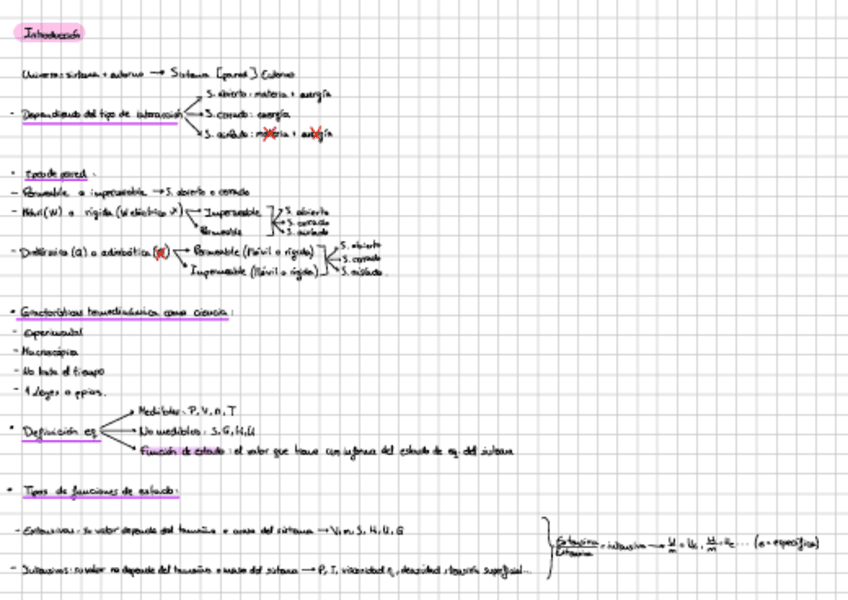 Introducción
Universo: sistema + entorno → Sistema [pared] Entorno
S. abierto: materia + energía
- Dependiendo del tipo de interacción → S. cerrado: energía
S. aislado: materia + energía
• Tipo de pared:
- Permeable o impermeable → S. abierto o cerrado
- Móvil (W) o rígida (W eléctrico x) → Impermeable S. abierto
Permeable S. cerrado
S. aislado
- Diatérmica (Q) o adiabática (Q) → Permeable (Móvil o rígida) S. abierto
S. cerrado
Impermeable (Móvil o rígida) S. aislado.
• Características termodinámica como ciencia:
- Experimental
- Macroscópica
- No trata el tiempo
- 4 leyes o ppios.
Medibles: P, V, n, T
• Definición eq → No medibles: S, G, H, U
Función de estado: el valor que tiene nos informa del estado de eq. del sistema
• Tipos de funciones de estado:
- Extensivas: su valor depende del tamaño o masa del sistema → V, n, S, H, U, G
Extensiva/Extensiva = intensiva → (e = específica)
- Intensivas: su valor no depende del tamaño o masa del sistema → P, T, viscosidad η, densidad, tensión superficial...